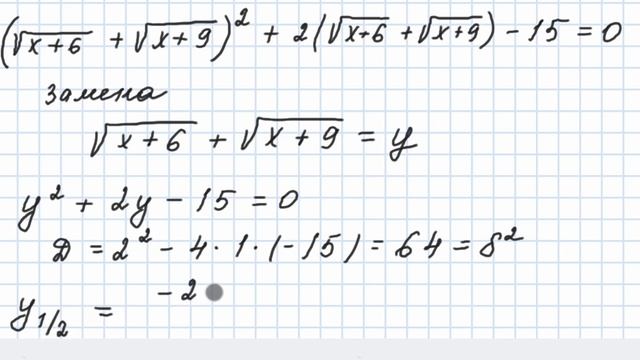 (√(x+6) + √(x+9))² + 2(√(x+6) + √(x+9)) - 15 = 0
Замена
√(x+6) + √(x+9) = y
y² + 2y - 15 = 0
D = 2² - 4·1·(-15) = 64 = 8²
y1/2 = -2